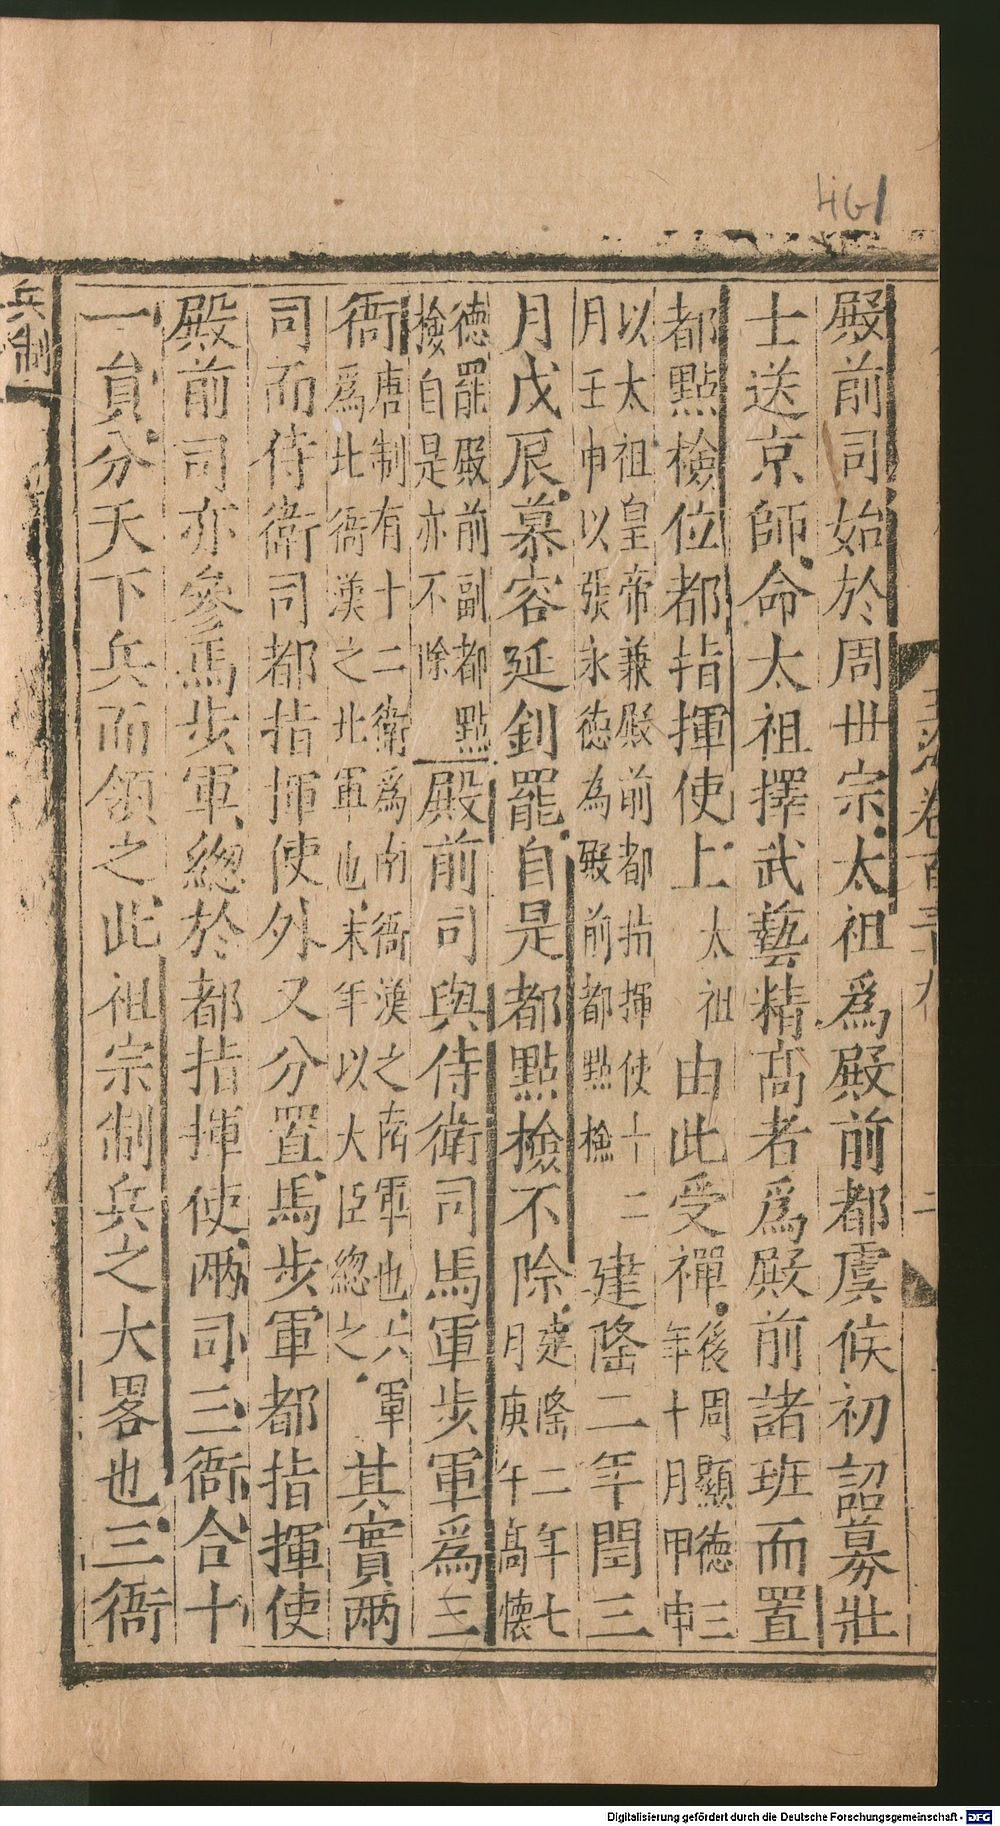 461
玉海卷百三十九 二
殿前司始於周丗宗太祖爲殿前都虞候初詔募壯
士送京師命太祖擇武藝精髙者爲殿前諸班而置
都點檢位都指揮使上太祖由此受禪後周顯德三
年十月甲申
以太祖皇帝兼殿前都指揮使十二
月壬申以張永德為殿前都點檢
建隆二年閏三
月戊辰慕容延釗罷自是都點檢不除建隆二年七
月庚午髙懐
德罷殿前副都點
檢自是亦不除
殿前司與侍衛司馬軍步軍爲三
衙唐制有十二衛爲南衙漢之南軍也六軍
爲北衙漢之北軍也末年以大臣緫之
其實兩
司而侍衛司都指揮使外又分置馬步軍都指揮使
殿前司亦參馬步軍緫於都指揮使兩司三衙合十
一員分天下兵而領之此祖宗制兵之大畧也三衙
兵制
Digitalisierung gefördert durch die Deutsche Forschungsgemeinschaft - DFG